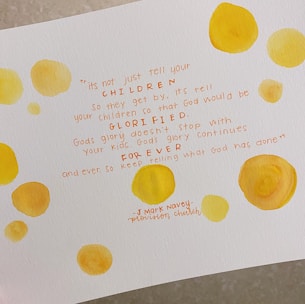 "its not just tell your
CHILDREN
so they get by, it's tell
your children so that God would be
GLORIFIED.
Gods glory doesn't stop with
your kids, God' glory continues
FOREVER
and ever so keep telling what God has done"
J Mark Navey,
Church